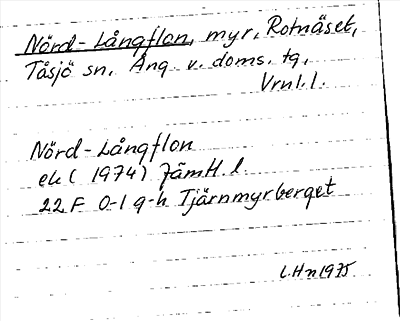 Nörd-Långflon, myr, Rotnäset,
Tåsjö sn. Ång. v. doms. tg,
Vrnl. l.
Nörd-Långflon
ek ( 1974) JämtL. l
22 F 0-1 g-h Tjärnmyrberget
L.Hn 1975